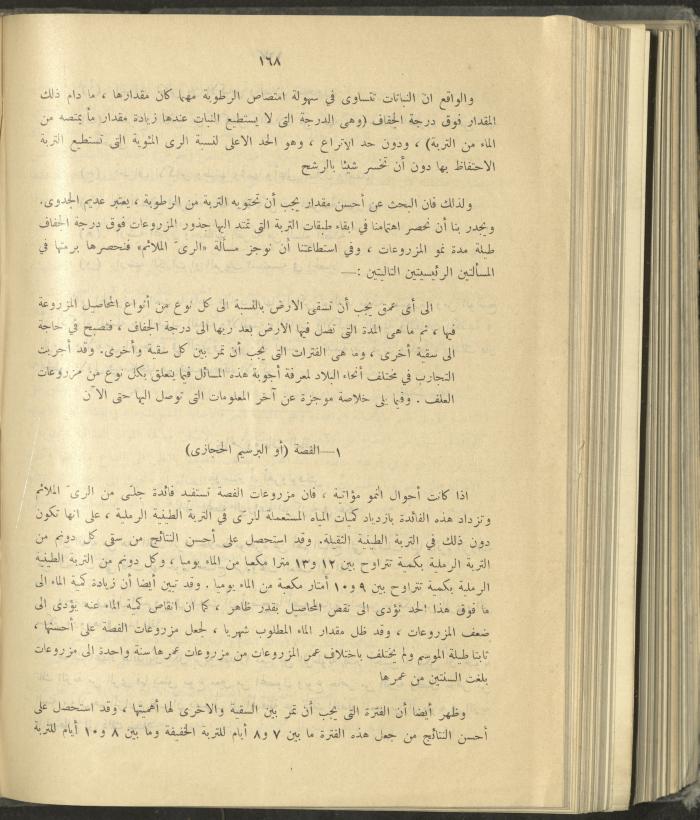 ١٦٨
والواقع ان النباتات تتساوى في سهولة امتصاص الرطوبة مهما كان مقدارها ، ما دام ذلك
المقدار فوق درجة الجفاف (وهي الدرجة التي لا يستطيع النبات عندها زيادة مقدار ما يمتصه من
الماء من التربة) ، ودون حد الاتراع ، وهو الحد الاعلى لنسبة الرى المئوية التي تستطيع التربة
الاحتفاظ بها دون أن تخسر شيئا بالرشح
ولذلك فان البحث عن أحسن مقدار يجب أن تحتويه التربة من الرطوبة ، يعتبر عديم الجدوى.
ويجدر بنا أن نحصر اهتمامنا في ابقاء طبقات التربة التي تمتد اليها جذور المزروعات فوق درجة الجفاف
طيلة مدة نمو المزروعات ، وفي استطاعتنا أن نوجز مسألة «الرىّ الملائم» فنحصرها برمتها في
المسألتين الرئيسيتين التاليتين :—
الى أى عمق يجب أن تسقى الارض بالنسبة الى كل نوع من أنواع المحاصيل المزروعة
فيها ، ثم ما هى المدة التى تصل فيها الارض بعد ريها الى درجة الجفاف ، فتصبح في حاجة
الى سقية أخرى ، وما هى الفترات التى يجب أن تمر بين كل سقية وأخرى. وقد أجريت
التجارب في مختلف أنحاء البلاد لمعرفة أجوبة هذه المسائل فيما يتعلق بكل نوع من مزروعات
العلف . وفيما يلى خلاصة موجزة عن آخر المعلومات التى توصل اليها حتى الآن
١—الفصة (أو البرسيم الحجازى)
اذا كانت أحوال النمو مؤاتية ، فان مزروعات الفصة تستفيد فائدة جلّى من الرىّ الملائم
وتزداد هذه الفائدة بازدياد كميات المياه المستعملة للرّى في التربة الطينية الرملية ، على انها تكون
دون ذلك في التربة الطينية الثقيلة. وقد استحصل على أحسن النتائج من سقى كل دونم من
التربة الرملية بكمية تتراوح بين ١٢ و١٣ مترا مكعبا من الماء يوميا ، وكل دونم من التربة الطينية
الرملية بكمية تتراوح بين ٩ و١٠ أمتار مكعبة من الماء يوميا . وقد تبين أيضا أن زيادة كمية الماء الى
ما فوق هذا الحد تؤدى الى نقص المحاصيل بقدر ظاهر ، كما ان انقاص كمية الماء عنه يؤدى الى
ضعف المزروعات ، وقد ظل مقدار الماء المطلوب شهريا ، لجعل مزروعات الفصة على أحسنها ،
ثابتا طيلة الموسم ولم يختلف باختلاف عمر المزروعات من مزروعات عمرها سنة واحدة الى مزروعات
بلغت السنتين من عمرها
وظهر أيضا أن الفترة التى يجب أن تمر بين السقية والاخرى لها أهميتها ، وقد استحصل على
أحسن النتائج من جعل هذه الفترة ما بين ٧ و٨ أيام للتربة الخفيفة وما بين ٨ و١٠ أيام للتربة